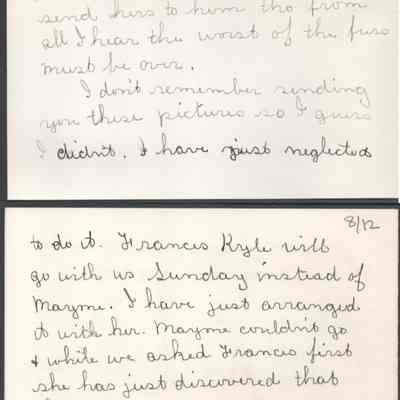 send hers to him tho from
all I hear the worst of the fuss
must be over.
I don't remember sending
you these pictures so I guess
I didn't. I have just neglected
8/12
to do it. Frances Kyle will
go with us Sunday instead of
Mayme. I have just arranged
it with her. Mayme couldn't go
& while we asked Frances first
she has just discovered that